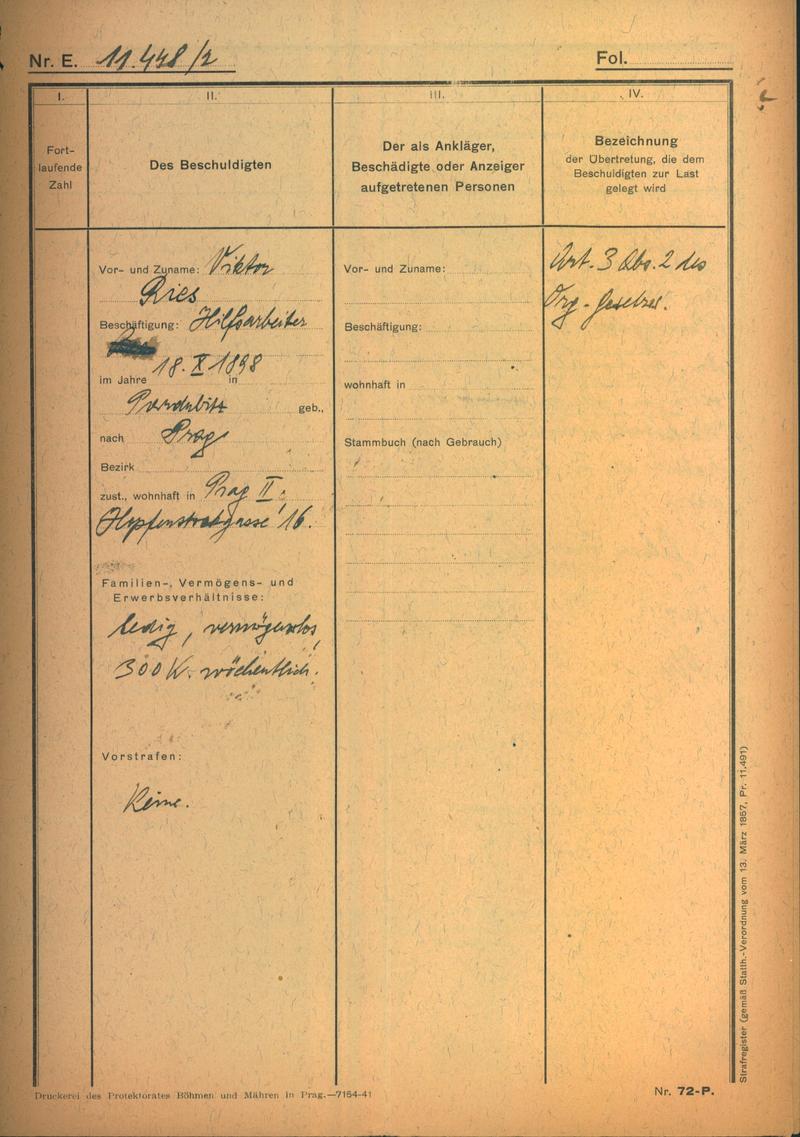 Nr. E. 11.448/2
Fol.
I.
II.
III.
IV.
Fort-
laufende
Zahl
Des Beschuldigten
Der als Ankläger,
Beschädigte oder Anzeiger
aufgetretenen Personen
Bezeichnung
der Übertretung, die dem
Beschuldigten zur Last
gelegt wird
Vor- und Zuname: Viktor
Ries
Beschäftigung: Hilfsarbeiter
18. X 1898
im Jahre in
Pardubitz geb.,
nach Prag
Bezirk
zust., wohnhaft in Prag II.,
Hopfenstockgasse 16.
Familien-, Vermögens- und
Erwerbsverhältnisse:
ledig, vermögenslos,
300 K. wöchentlich.
Vorstrafen:
Keine.
Vor- und Zuname:
Beschäftigung:
wohnhaft in
Stammbuch (nach Gebrauch)
Art. 3 Abs. 2 des
Org-Gesetzes.
Strafregister (gemäß Statth.-Verordnung vom 13. März 1857, Pr. 11.491)
Druckerei des Protektorates Böhmen und Mähren in Prag.—7154-41
Nr. 72-P.